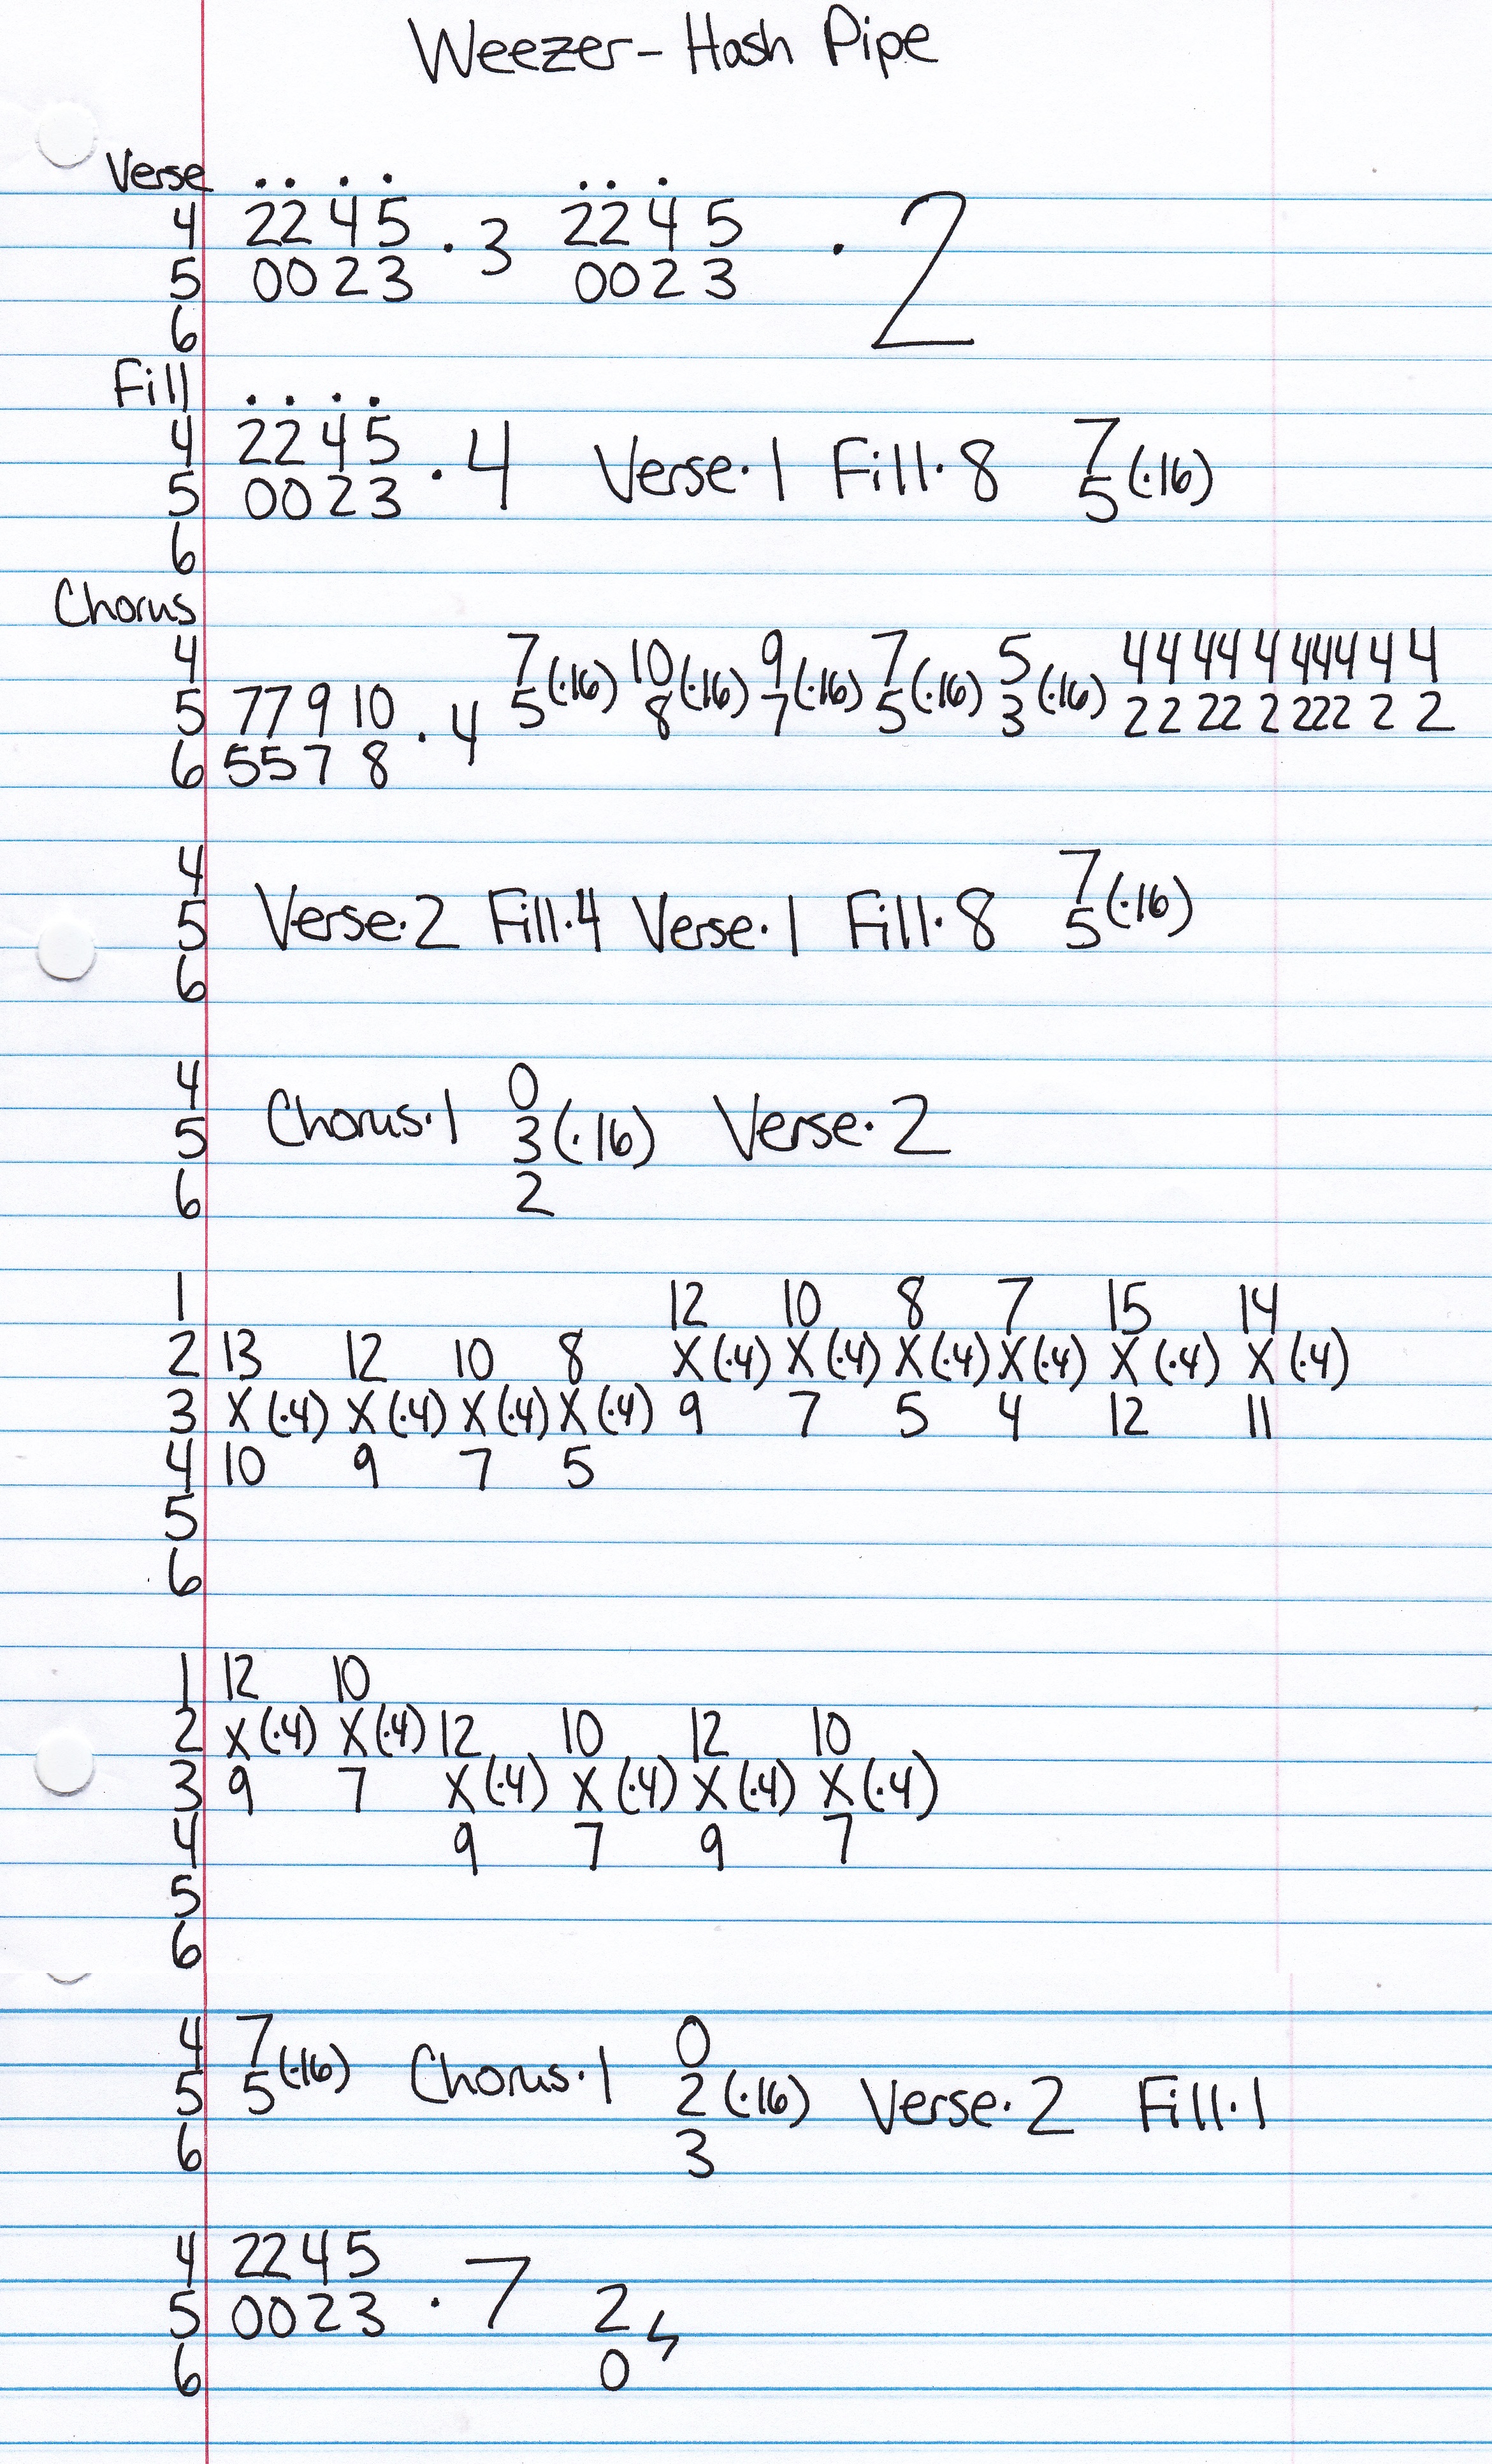 Weezer - Hash Pipe
Verse . . . . . . .
4 2245 2245
5 0023 · 3 0023 · 2
6
Fill . . . .
4 2245 7
5 0023 · 4 Verse·1 Fill·8 5(·16)
6
Chorus
4 7 10 9 7 5 44 44 4 444 4 4
5 77 9 10 · 4 5(·16) 8(·16) 7(·16) 5(·16) 3(·16) 22 22 2 222 2 2
6 557 8
4 7
5 Verse·2 Fill·4 Verse·1 Fill·8 5(·16)
6
4 0
5 Chorus·1 3(·16) Verse·2
6 2
1 12 10 8 7 15 14
2 13 12 10 8 X(·4) X(·4) X(·4) X(·4) X(·4) X(·4)
3 X(·4) X(·4) X(·4) X(·4) 9 7 5 4 12 11
4 10 9 7 5
5
6
1 12 10
2 X(·4) X(·4) 12 10 12 10
3 9 7 X(·4) X(·4) X(·4) X(·4)
4 9 7 9 7
5
6
4 7 0
5 5(·16) Chorus·1 2(·16) Verse·2 Fill·1
6 3
4 2245
5 0023 · 7 2
6 0